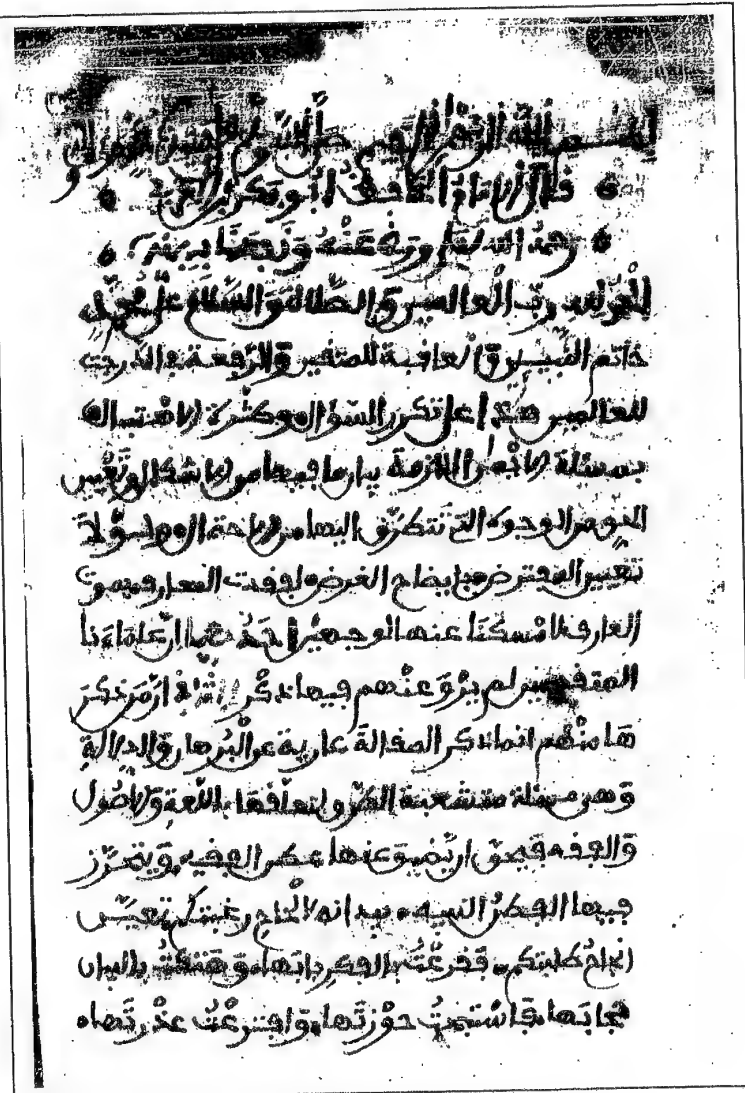 بسم الله الرحمن الرحيم صلى الله على
قال الإمام الحافظ أبو بكر بن العربي
رحمه الله تعالى ورضي عنه ونفعنا به بمنه
الحمد لله رب العالمين والصلاة والسلام على محمد
خاتم النبيين والعاقبة للمتقين والرفعة في الدرجات
للعالمين هكذا على تكرر السؤال وكثرة الاهتبال
بمسئلة الأيمان اللازمة بيان ما فيها من الإشكال وتعيين
الحق من الوجوه التي تتطرق إليها من الاحتمال ولولا
تعيين المفترض بإيضاح الغرض
العارف لأمسكنا عنها لوجهين أحدهما أن علماءنا
المتقدمين لم يرو عنهم فيها ذكر الثاني أن من ذكر
ها منهم إنما ذكر المقالة عارية عن البرهان والدلالة
وهي مسئلة متشعبة الطرق لتعلقها باللغة والأصول
والفقه فيحق أن يضيق عنها عطن الفقيه ويتحرز
فيها الفطن النبيه بيد أنه لإلحاح رغبتكم تعين
إنجاح طلبتكم فقرعت بالفكر بابها وهتكت بالبيان
حجابها فاستبحت حوزتها وافترعت عذرتها